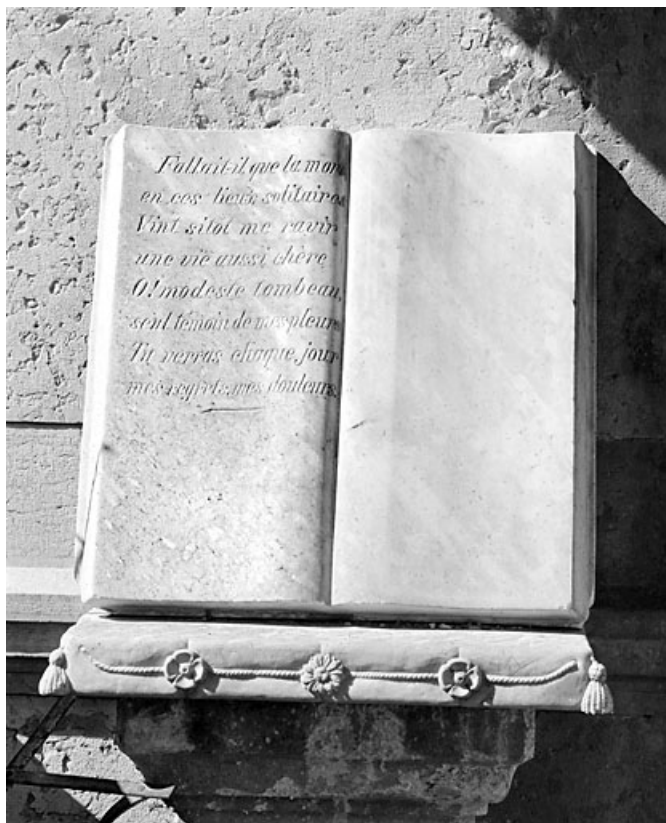 Fallait-il que la mort
en ces lieux solitaires
Vint sitot me ravir
une vie aussi chère
O! modeste tombeau,
seul témoin de mes pleurs
Tu verras chaque jour
mes regrets, mes douleurs.